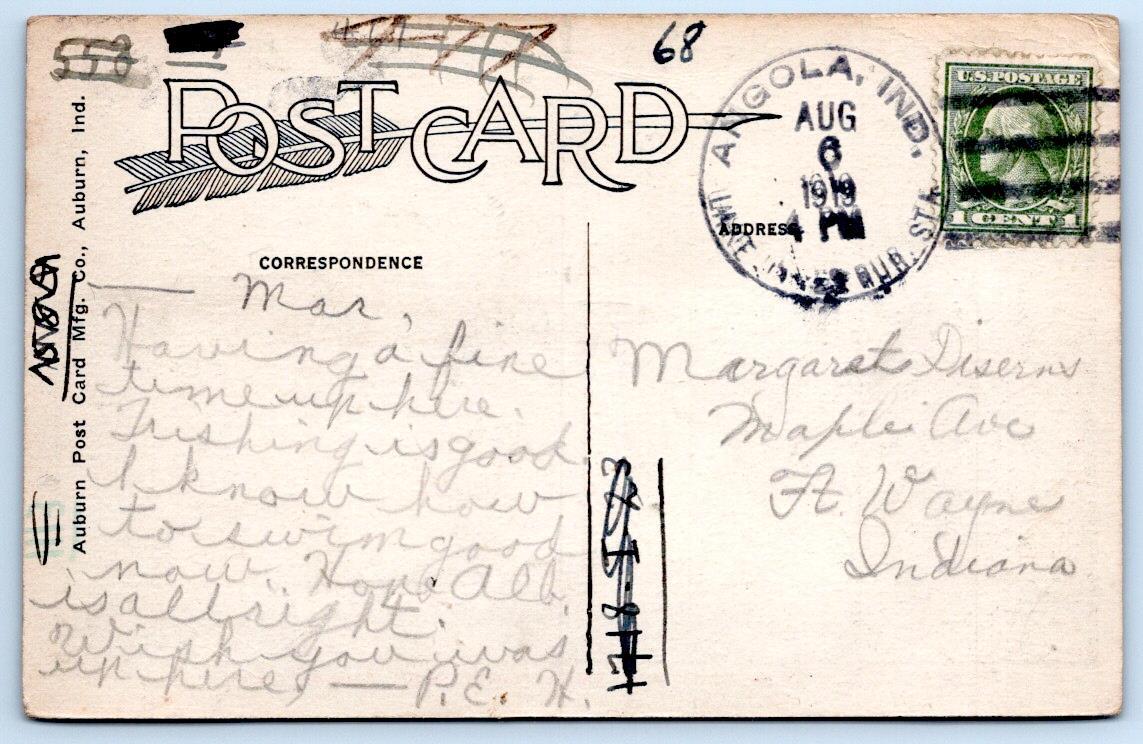 558
4-77
68
POST CARD
U.S. POSTAGE
1 CENT 1
ANGOLA, IND.
AUG
6
1919
4 PM
LAKE JAMES RUR. STA.
ADDRESS
CORRESPONDENCE
Auburn Post Card Mfg. Co., Auburn, Ind.
— Mar,
Having a fine
time up here.
Fishing is good.
I know how
to swim good
now. Hope Alb.
is all right.
Wish you was
up here, — P.E. H.
Margaret Diserns
Maple Ave
Ft. Wayne
Indiana